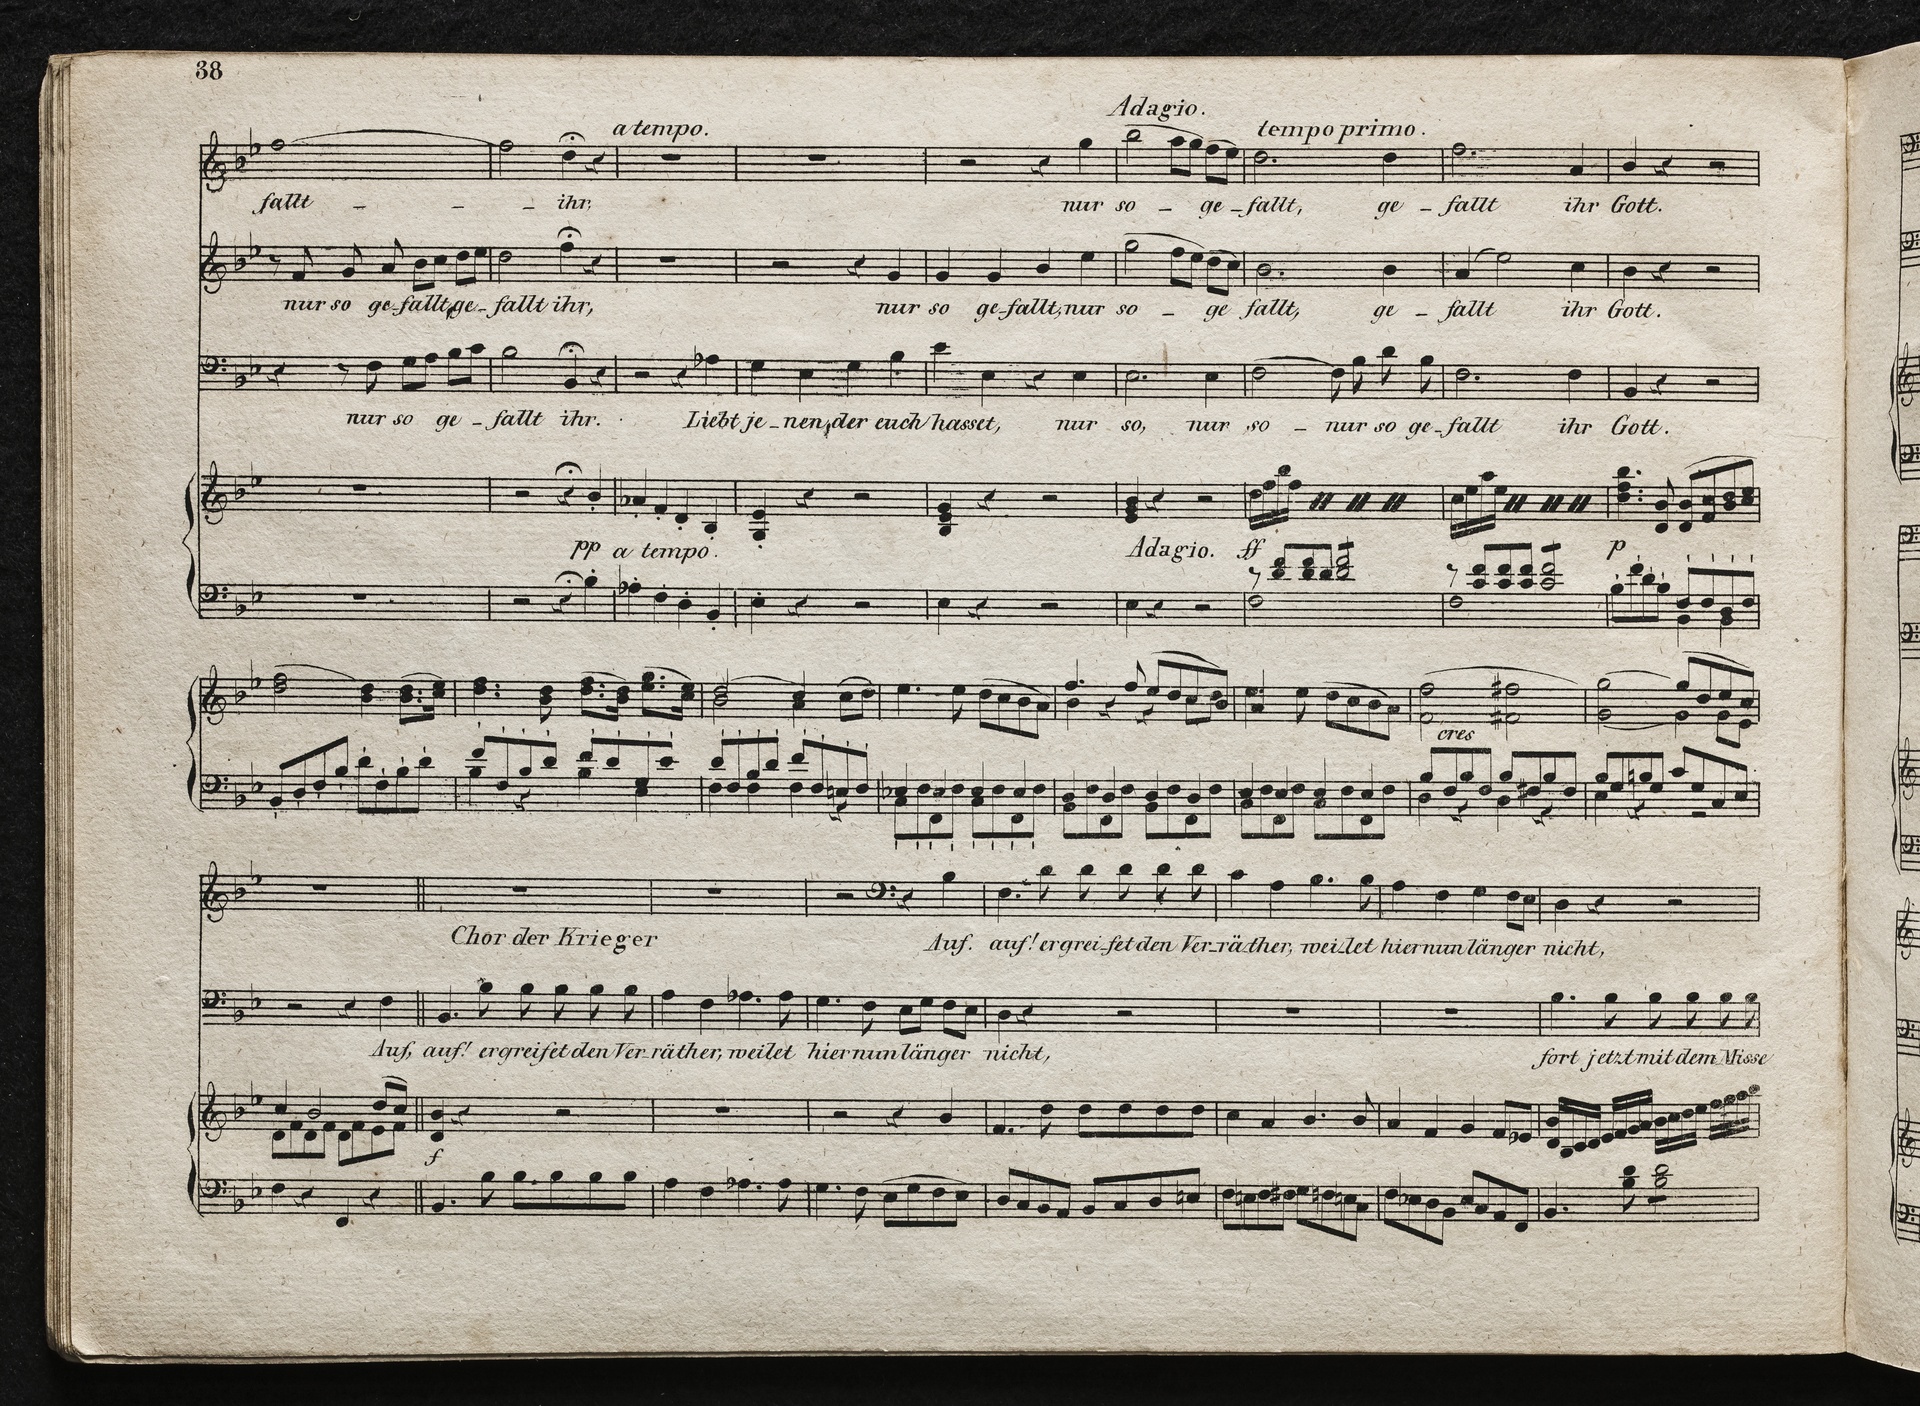 38
Adagio.
a tempo. tempo primo.
fallt _ _ _ ihr, nur so _ ge_fallt, ge _ fallt ihr Gott.
nur so ge-fallt, ge-fallt ihr, nur so ge-fallt, nur so _ ge fallt, ge _ fallt ihr Gott.
nur so ge _ fallt ihr. Liebt je _ nen, der euch hasset, nur so, nur so _ nur so ge_fallt ihr Gott.
pp a tempo. Adagio. ff p
cres
Chor der Krieger Auf. auf! ergrei_fet den Ver_räther, wei_let hier nun länger nicht,
Auf, auf! ergreifet den Ver_räther, weilet hier nun länger nicht, fort jetzt mit dem Misse
f